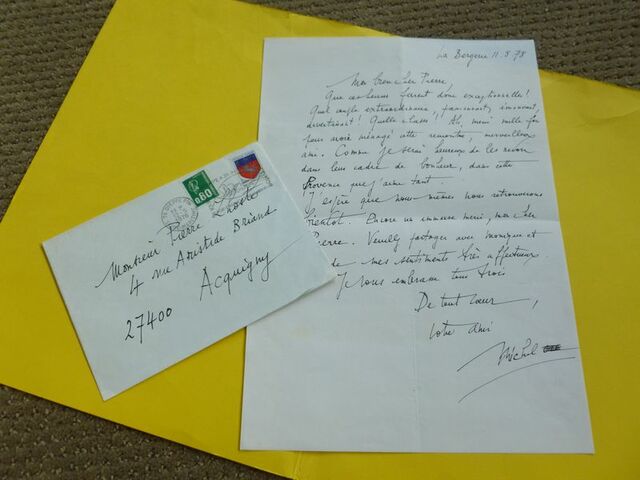 La Bergerie 11.5.78
Mon bien cher Pierre,
Que ces heures furent donc exceptionnelles!
Quel couple extraordinaire, passionnant, émouvant,
divertissant! Quelle classe! Ah, merci mille fois
pour avoir ménagé cette rencontre, merveilleux
ami. Comme je serai heureux de les revoir
dans leur cadre de bonheur, dans cette
Provence que j'aime tant
J'espère que nous mêmes nous retrouverons
bientôt. Encore un immense merci, mon cher
Pierre. Veuillez partager avec Monique et
de mes sentiments très affectueux.
Je vous embrasse tous trois
De tout cœur,
votre ami
Michel
0.80
Monsieur Pierre Lhoste
4 rue Aristide Briand
Acquigny
27400